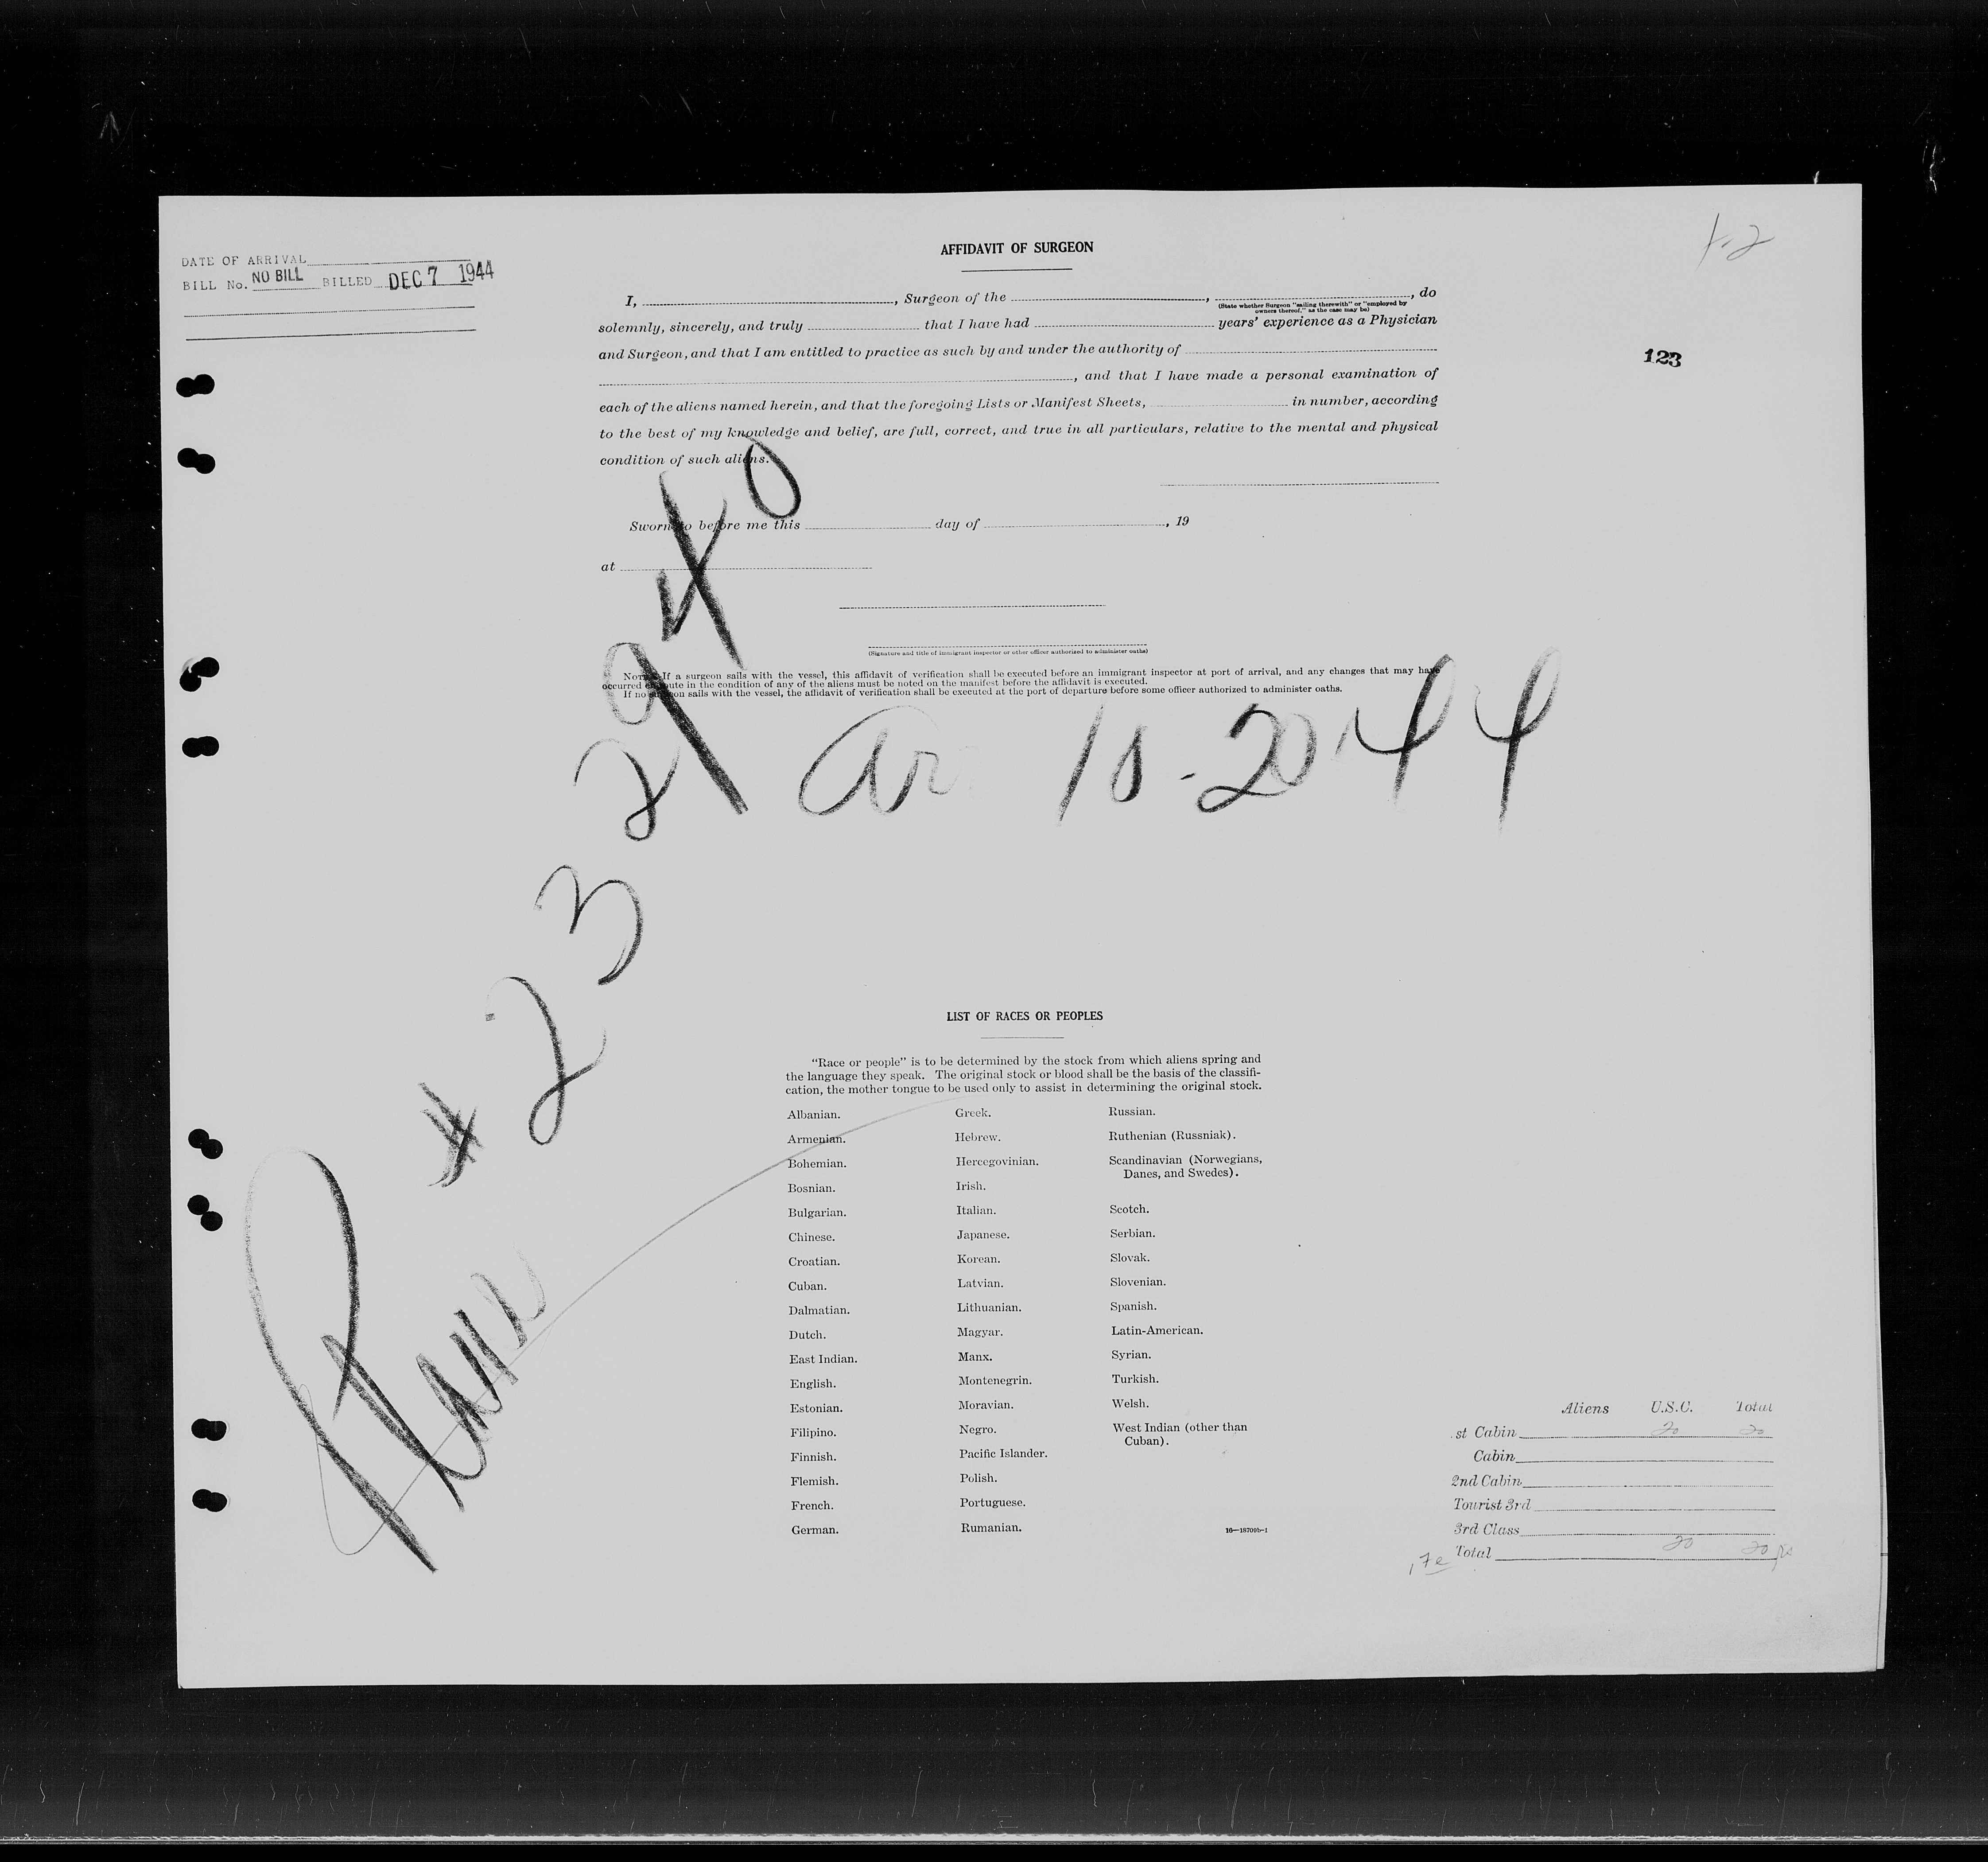 DATE OF ARRIVAL
BILL No. NO BILL BILLED DEC 7 1944
1-2
123
AFFIDAVIT OF SURGEON
I, , Surgeon of the , , do
(State whether Surgeon "sailing therewith" or "employed by
owners thereof," as the case may be)
solemnly, sincerely, and truly that I have had years' experience as a Physician
and Surgeon, and that I am entitled to practice as such by and under the authority of
, and that I have made a personal examination of
each of the aliens named herein, and that the foregoing Lists or Manifest Sheets, in number, according
to the best of my knowledge and belief, are full, correct, and true in all particulars, relative to the mental and physical
condition of such aliens.
Sworn to before me this day of , 19
at
(Signature and title of immigrant inspector or other officer authorized to administer oaths)
NOTE.—If a surgeon sails with the vessel, this affidavit of verification shall be executed before an immigrant inspector at port of arrival, and any changes that may have
occurred en route in the condition of any of the aliens must be noted on the manifest before the affidavit is executed.
If no surgeon sails with the vessel, the affidavit of verification shall be executed at the port of departure before some officer authorized to administer oaths.
Plane # 232940
Arr 10-20-44
LIST OF RACES OR PEOPLES
"Race or people" is to be determined by the stock from which aliens spring and
the language they speak. The original stock or blood shall be the basis of the classifi-
cation, the mother tongue to be used only to assist in determining the original stock.
Albanian.
Armenian.
Bohemian.
Bosnian.
Bulgarian.
Chinese.
Croatian.
Cuban.
Dalmatian.
Dutch.
East Indian.
English.
Estonian.
Filipino.
Finnish.
Flemish.
French.
German.
Greek.
Hebrew.
Hercegovinian.
Irish.
Italian.
Japanese.
Korean.
Latvian.
Lithuanian.
Magyar.
Manx.
Montenegrin.
Moravian.
Negro.
Pacific Islander.
Polish.
Portuguese.
Rumanian.
Russian.
Ruthenian (Russniak).
Scandinavian (Norwegians,
Danes, and Swedes).
Scotch.
Serbian.
Slovak.
Slovenian.
Spanish.
Latin-American.
Syrian.
Turkish.
Welsh.
West Indian (other than
Cuban).
16—18700b-1
Aliens U.S.C. Total
st Cabin 20 20
Cabin
2nd Cabin
Tourist 3rd
3rd Class
Total 20 20